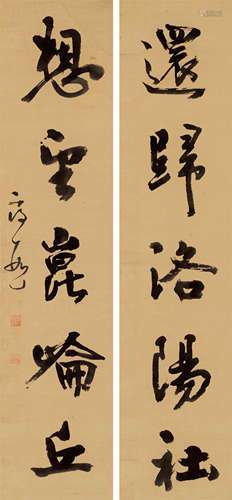 還歸洛陽社
想望崑崙丘